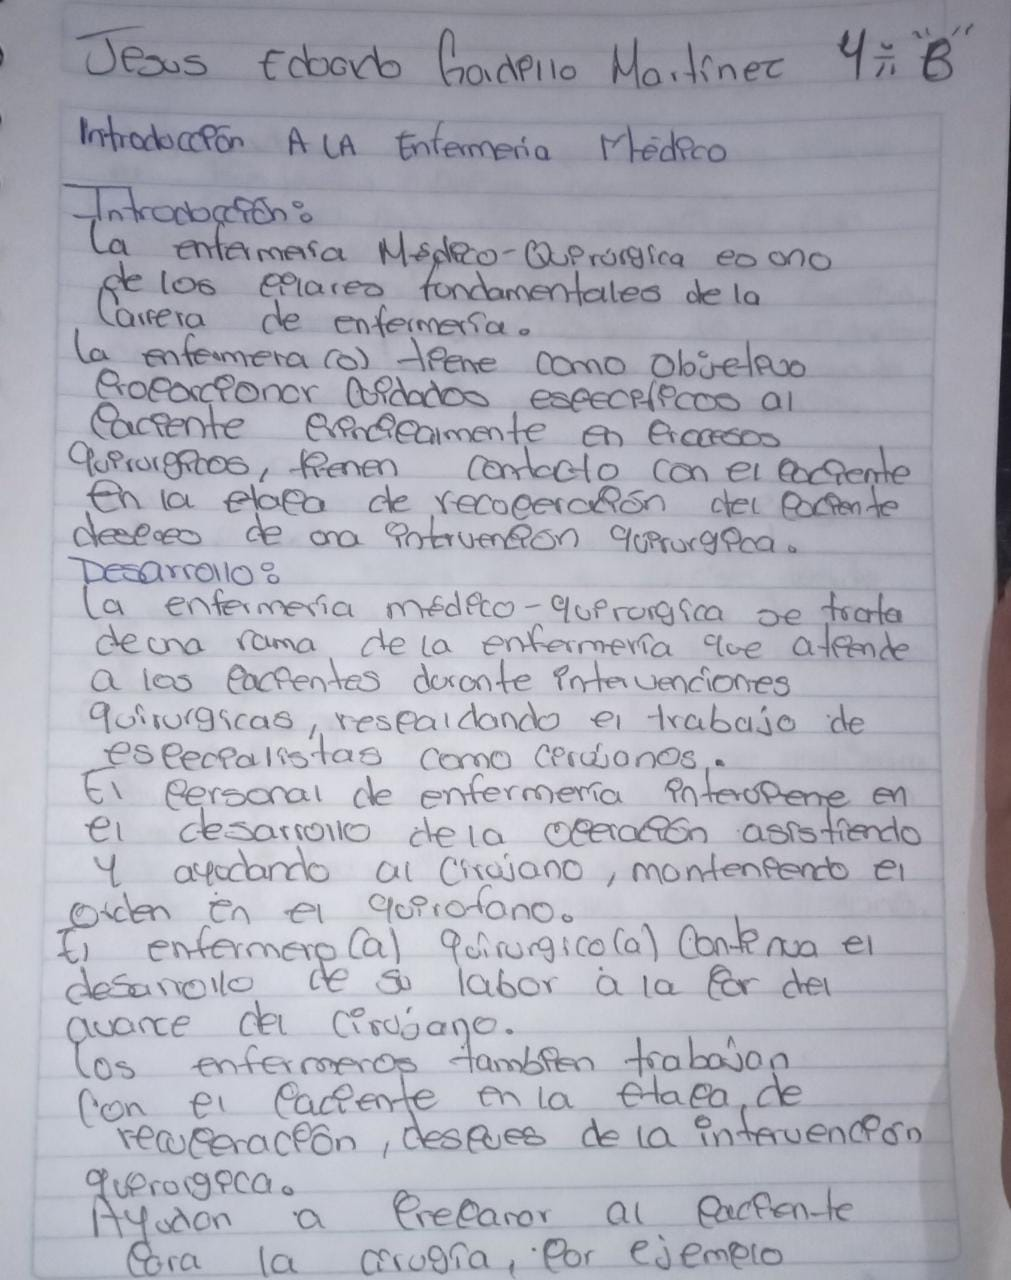 Jesus Eduardo Gordillo Martínez 4 "B"
Introducción A LA Enfermeria Médico
Introducción:
La enfermería Médico-Quirúrgica es uno
de los pilares fundamentales de la
Carrera de enfermería.
La enfermera (o) tiene como objetivo
Proporcionar Cuidados especificos al
Paciente en Procesos
quirurgicos, tienen contacto con el Paciente
en la etapa de recuperación del Paciente
despues de una intervención quirurgica.
Desarrollo:
La enfermería médico-quirurgica se trata
de una rama de la enfermería que atiende
a los Pacientes durante intervenciones
quirurgicas, respaldando el trabajo de
especialistas como cirujanos.
El Personal de enfermería interviene en
el desarrollo de la operación asistiendo
y ayudando al Cirujano, manteniendo el
orden en el quirofano.
El enfermero(a) quirurgico(a) Continua el
desarrollo de su labor a la Par del
avance del Cirujano.
Los enfermeros tambien trabajan
Con el Paciente en la etapa de
recuperación, despues de la intervención
quirurgica.
Ayudan a Preparar al Paciente
Para la cirugía, Por ejemplo